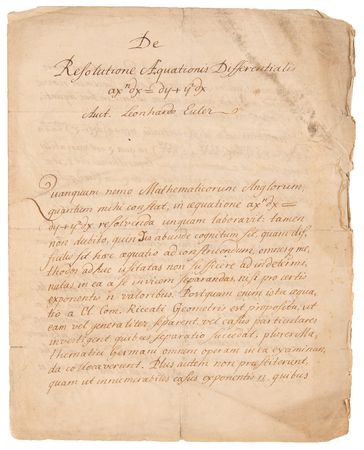 De
Resolutione Æquationis Differentialis
axⁿdx = dy + y²dx
Auct. Leonhardo Euler
Quanquam nemo Mathematicorum Anglorum,
quantum mihi constat, in æquatione axⁿdx =
dy + y²dx resolvenda unquam laboravit: tamen
non dubito, quin Iis abunde cognitum sit, quam dif,
ficilis sit hæc æquatio ad construendum, omnesq me,
thodos adhuc usitatas non sufficere ad indetermi,
natas, in ea a se invicem separandas, nisi pro certis
exponentis n valoribus. Postquam enim ista æqua,
tio a Cl. Com. Riccati Geometris est proposita, ut
eam vel generaliter separent, vel casus particulares
investigent, quibus separatio succedat, plures Ma,
thematici Germani omnem operam in ea examinan,
da collocaverunt. Plus autem non præstiterunt,
quam ut innumerabiles casus exponentis n, quibus